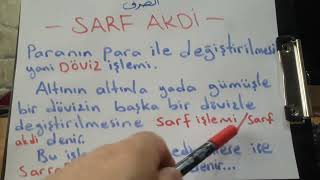 الصرف
- SARF AKDİ -
Paranın Para ile değiştirilmesi
yani DÖVİZ işlemi.
Altının altınla yada gümüşle
bir dövizin başka bir dövizle
değiştirilmesine sarf işlemi/sarf
akdi denir.
Bu ise
denir...